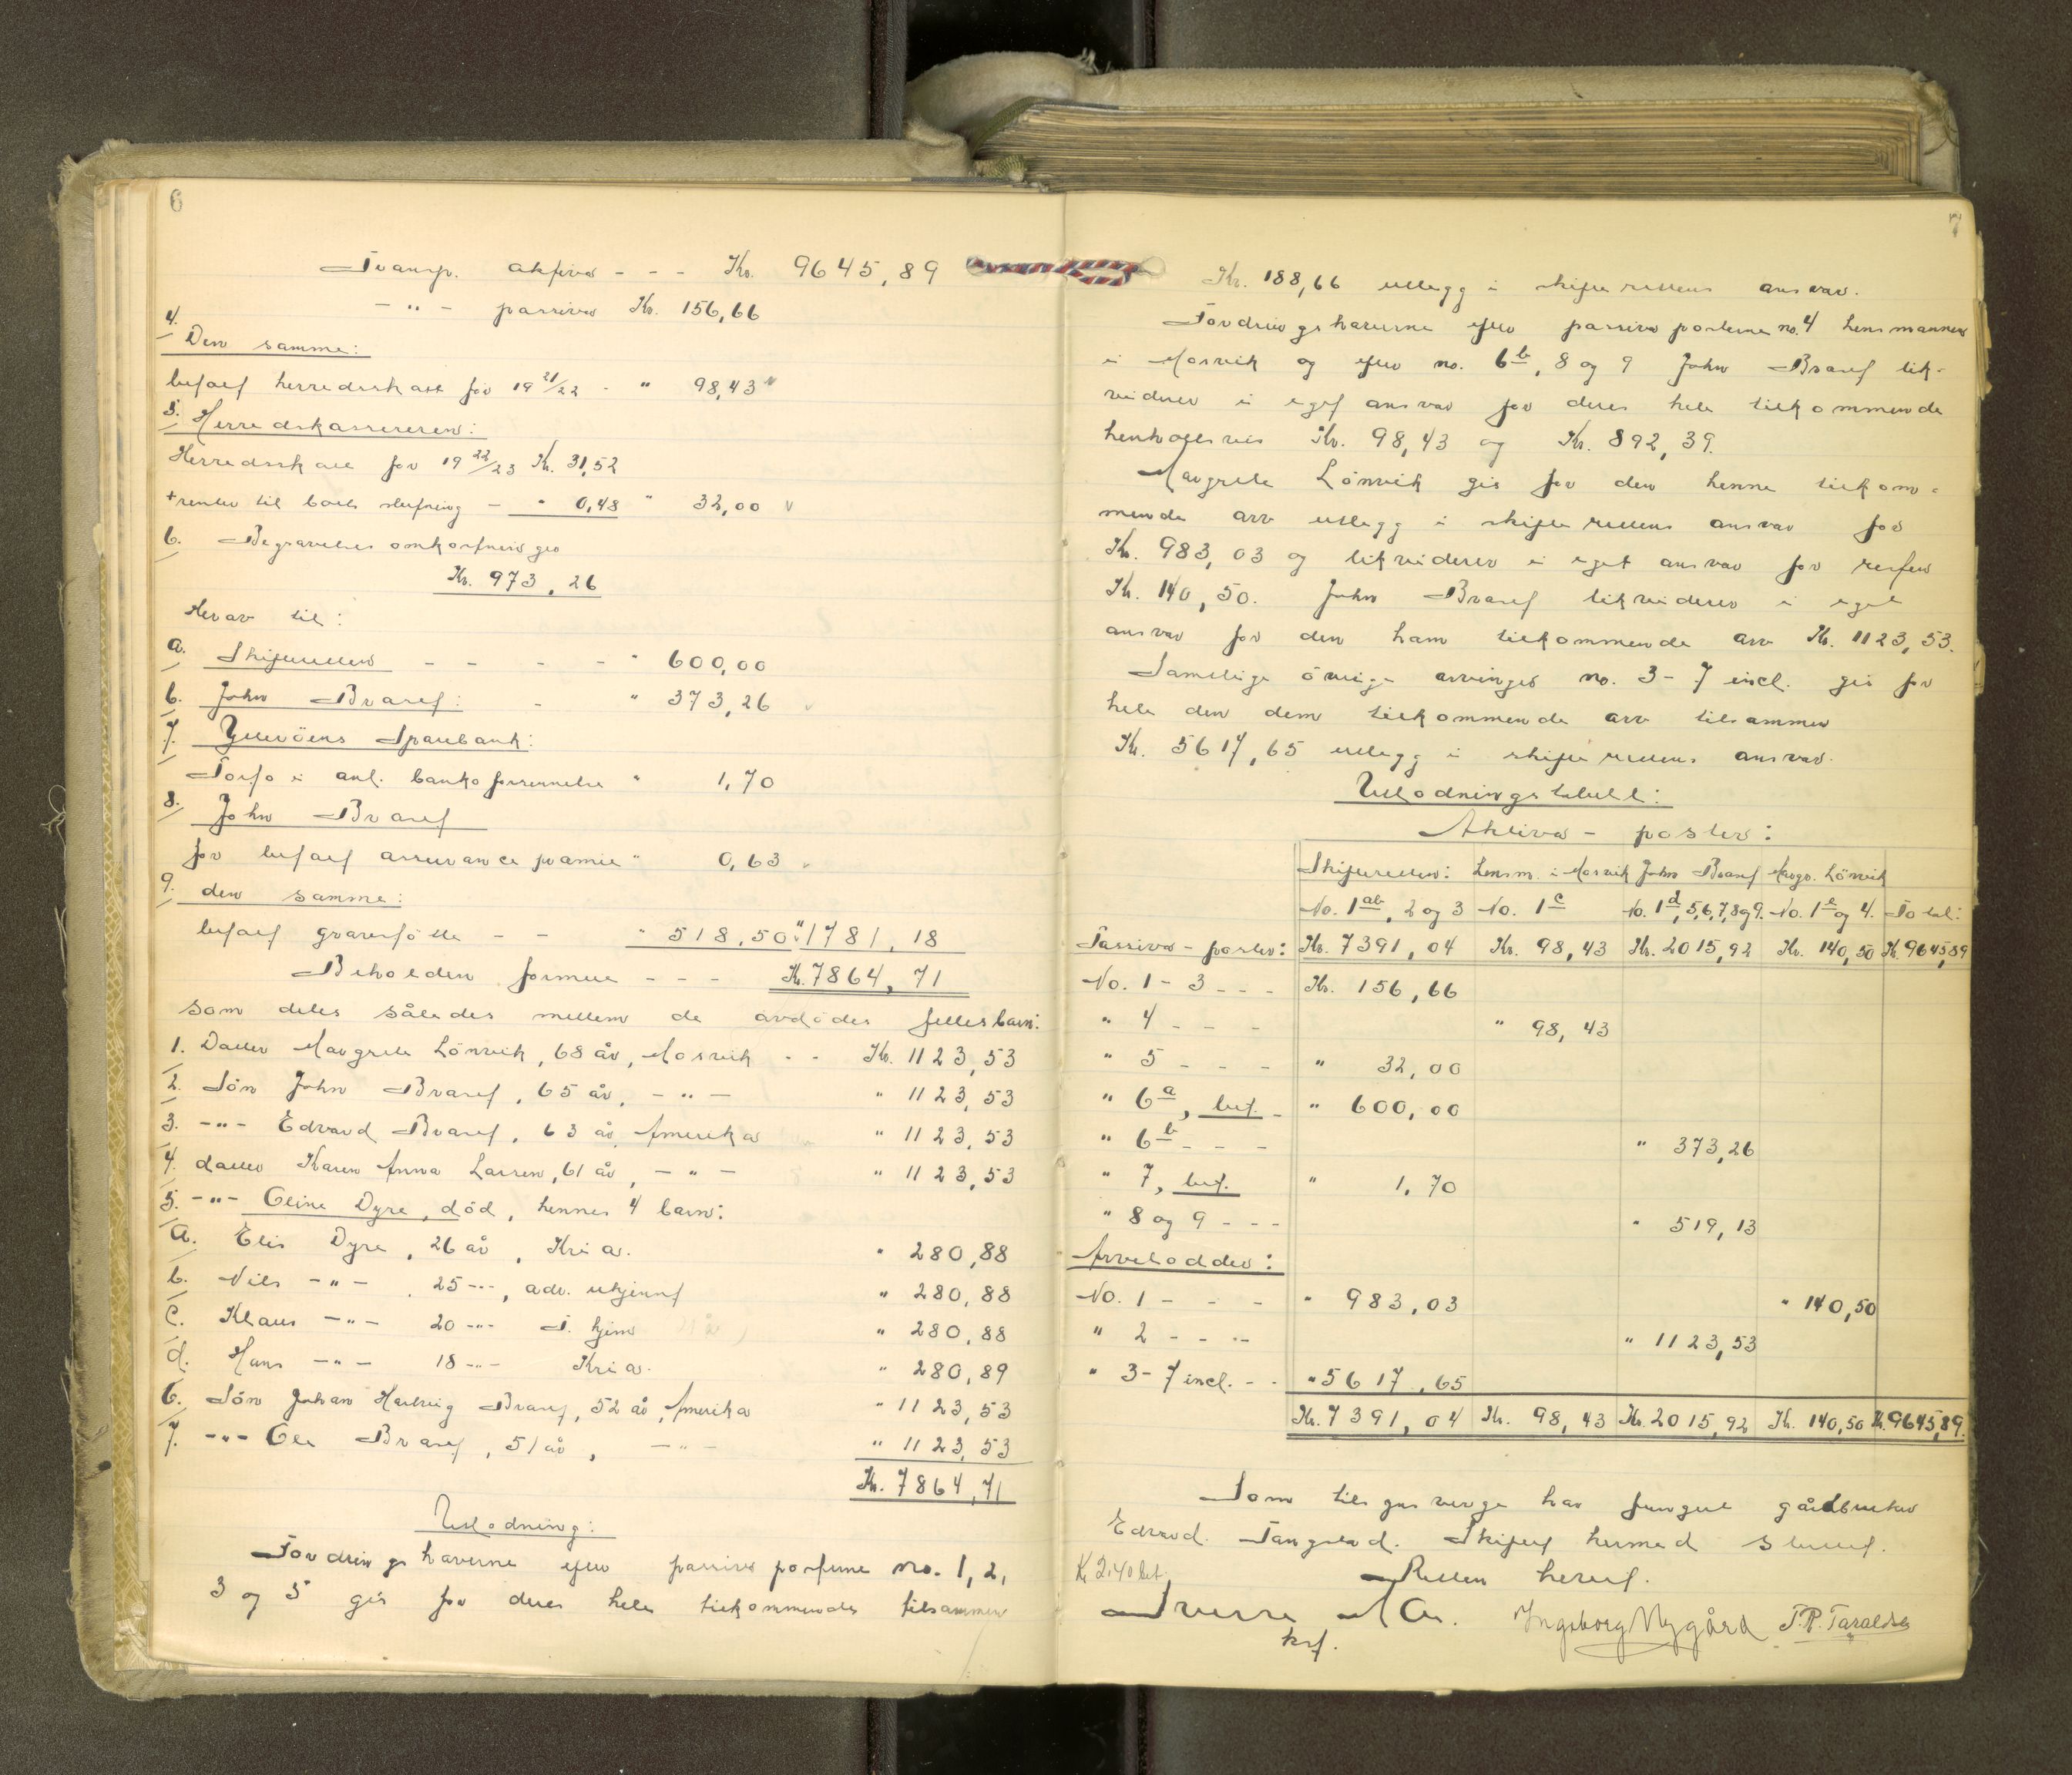 6
Transp. aktiva - - - Kr. 9645,89
- " - passiva Kr. 156,66
4. Den samme:
betalt herredsskatt for 19 21/22 - " 98,43
5. Herredskassereren:
Herredsskatt for 19 22/23 Kr. 31,52
+renter til boets slutning - " 0,48 " 32,00
6. Begravelsesomkostninger
Kr. 973,26
Herav til:
a. Skifteretten - - - - " 600,00
b. John Braset: - " 373,26
7. Ytterøens Sparebank:
Porto i anl. bankoforrennelse " 1,70
8. John Braset
for betalt assurancepræmie " 0,63
9. den samme:
betalt gravstøtte - - " 518,50 " 1781,18
Beholden formue - - - Kr. 7864,71
som deles således mellem de avdødes fellesbarn:
1. Datter Margrete Lönvik, 68 år, Mosvik - - Kr. 1123,53
2. Sön John Braset, 65 år, - " - " 1123,53
3. - " - Edvard Braset, 63 år, Amerika " 1123,53
4. datter Karen Anna Larsen, 61 år, - " - " 1123,53
5. - " - Oline Dyre, död, hennes 4 barn:
a. Elis Dyre, 26 år, Kria. " 280,88
b. Nils - " - , 25 - " -, adr. ukjent " 280,88
c. Klaus - " - 20 - " - T. hjem " 280,88
d. Hans - " - 18 - " - Kria. " 280,89
6. Sön Johan Hartvig Braset, 52 år, Amerika " 1123,53
7. - " - Ole Braset, 51 år, - " - " 1123,53
Kr. 7864,71
Utlodning:
Fordringshaverne efter passiva posterne no. 1, 2,
3 og 5 gis for deres hele tilkommende tilsammen
7
Kr. 188,66 utlegg i skifterettens ansvar.
Fordringshaverne efter passiva posterne no. 4 lensmannen
i Mosvik og efter no. 6b, 8 og 9 John Braset lik-
viderer i eget ansvar for deres hele tilkommende
henholdsvis Kr. 98,43 og Kr. 892,39.
Margrete Lönvik gis for den henne tilkom-
mende arv utlegg i skifterettens ansvar for
Kr. 983,03 og likviderer i eget ansvar for resten
Kr. 140,50. John Braset likviderer i eget
ansvar for den ham tilkommende arv Kr. 1123,53.
Samtlige övrige arvinger no. 3-7 incl. gis for
hele den dem tilkommende arv tilsammen
Kr. 5617,65 utlegg i skifterettens ansvar.
Utlodningstabell:
Aktiva - poster:
Skifteretten: Lensm. i Mosvik John Braset Margr. Lönvik
No. 1ab, 2 og 3 No. 1c No. 1d, 5,6,7,8 og 9. No. 1e og 4. Total:
Passiva - poster: Kr. 7391,04 Kr. 98,43 Kr. 2015,92 Kr. 140,50 Kr. 9645,89
No. 1 - 3 - - - Kr. 156,66
" 4 - - - " 98,43
" 5 - - - " 32,00
" 6a, bet. - " 600,00
" 6b - - - " 373,26
" 7, bet. " 1,70
" 8 og 9 - - - " 519,13
Arvelodder:
No. 1 - - - " 983,03 " 140,50
" 2 - - - " 1123,53
" 3-7 incl. - - " 5617,65
Kr. 7391,04 Kr. 98,43 Kr. 2015,92 Kr. 140,50 Kr. 9645,89.
Som tilsynsverge har fungert gårdbruker
Edvard Tangstad. Skiftet hermed sluttet.
Kr 2.40 bet. Retten hevet.
Sverre Ingeborg Nygård T.R. Taraldsen
kst.